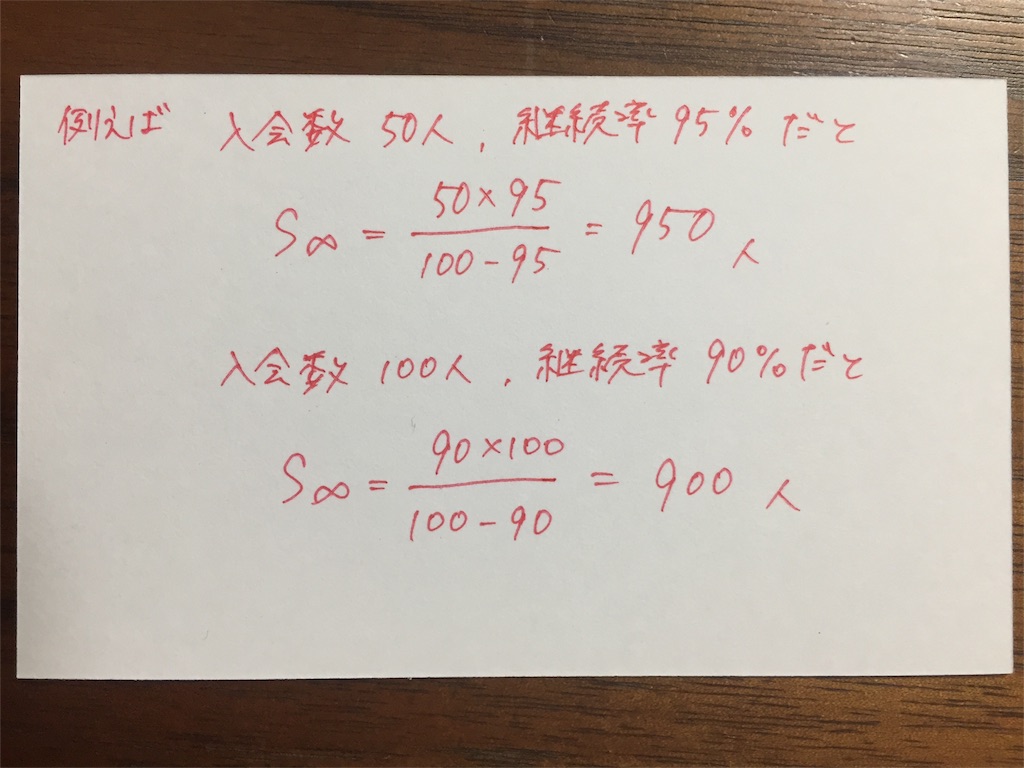 例えば 入会数 50人, 継続率 95% だと
S∞ = 50×95 / 100-95 = 950 人
入会数 100人, 継続率 90% だと
S∞ = 90×100 / 100-90 = 900 人